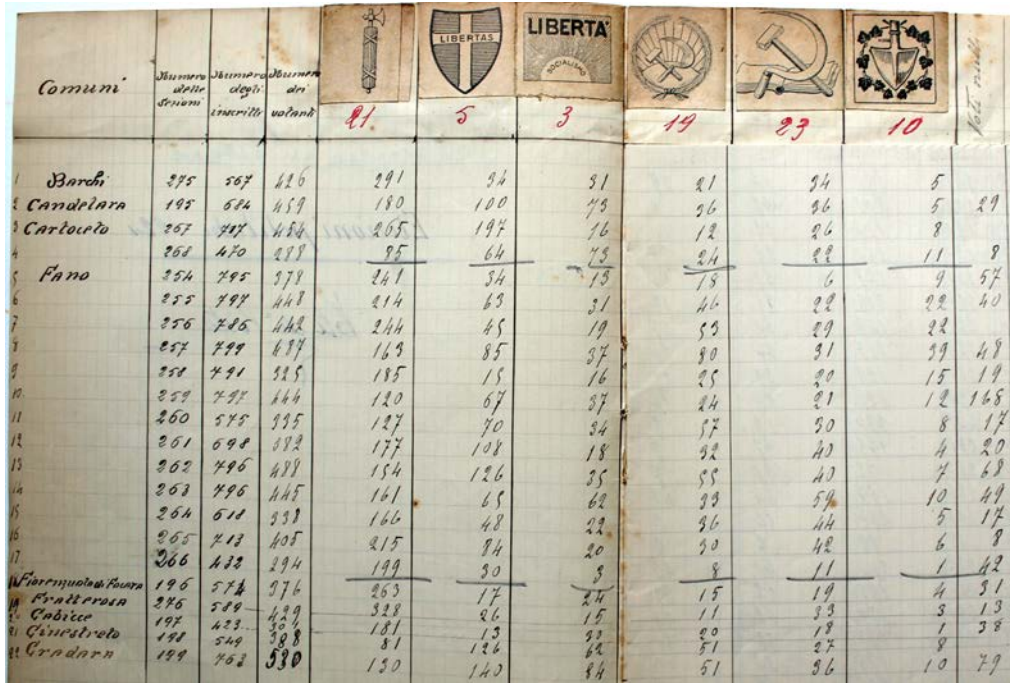 Comuni Numero delle Sezioni Numero degli inscritti Numero dei votanti LIBERTAS LIBERTÀ SOCIALISMO Voti nulli
21 5 3 19 23 10
1 Barchi 275 567 426 291 34 31 21 34 5
2 Candelara 195 684 459 180 100 73 36 36 5 29
3 Cartoceto 267 454 265 197 16 12 26 8
4 268 470 288 85 64 73 24 22 11 8
5 Fano 254 795 378 241 34 13 18 6 9 57
6 255 797 448 214 63 31 46 22 22 40
7 256 786 442 244 45 19 53 29 22
8 257 799 487 163 85 37 80 31 39 48
9 258 791 325 185 15 16 25 20 15 19
10 259 797 444 120 67 37 24 21 12 168
11 260 575 335 127 70 34 57 30 8 17
12 261 698 382 177 108 18 32 40 4 20
13 262 796 488 154 126 35 55 40 7 68
14 263 796 445 161 65 62 33 59 10 49
15 264 618 338 166 48 22 36 44 5 17
16 265 713 405 215 84 20 30 42 6 8
17 266 432 294 199 30 3 8 11 1 42
18 Fiorenzuola di Focara 196 574 376 263 17 24 15 19 4 31
19 Fratterosa 276 589 429 328 26 15 11 33 3 13
20 Gabicce 197 423 304 181 13 20 18 1 38
21 Ginestreto 198 549 388 81 126 62 51 27 8
22 Gradara 199 763 530 130 140 84 51 36 10 79